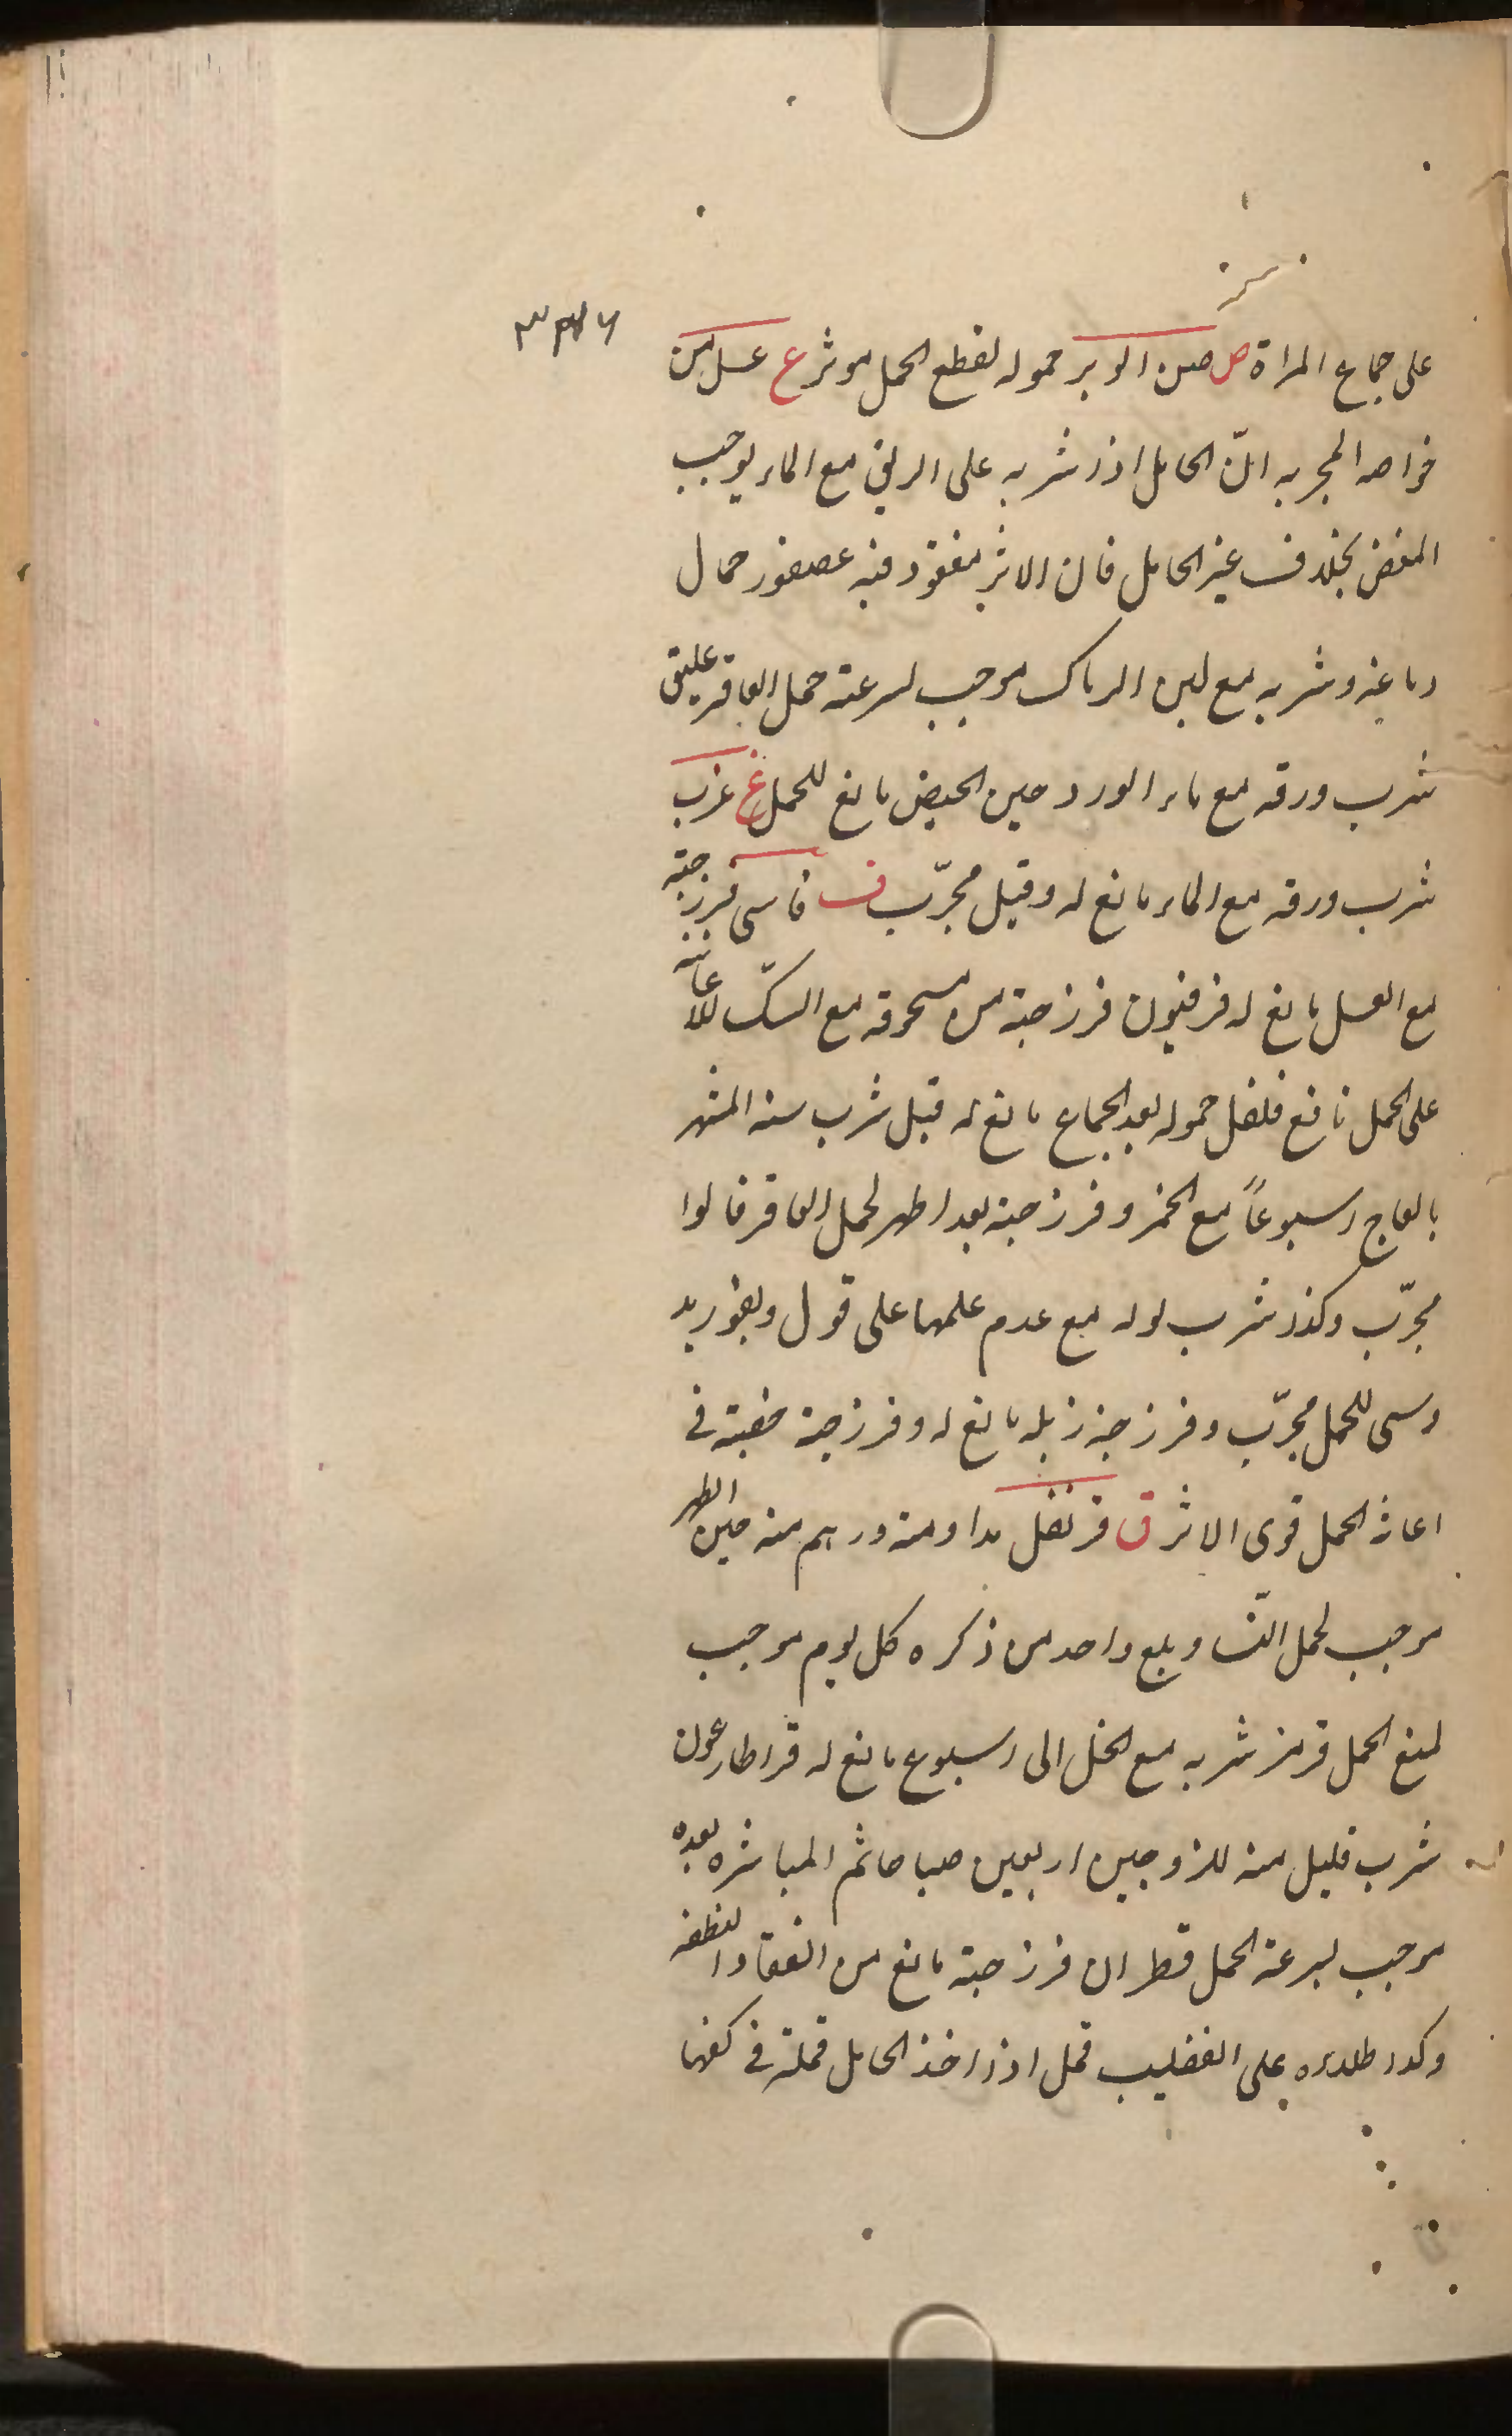 على جماع المراة ص صين الوبر حموله لقطع الحمل موثر ع عسل من
خواصه المجربه انّ الحامل اذا شربه على الريق مع الماء يوجب
المغص بخلاف غير الحامل فان الاثر مفقود فيه عصفور حمال
دماغه وشربه مع لبن الرماك موجب لسرعته حمل العاقر عليق
شرب ورقه مع ماء الورد حين الحيض مانع للحمل غ غرب
شرب ورقه مع الماء مانع له وقيل مجرّب ف فاسى فرزجته
مع العسل مانع له فرفيون فرزجته من مسحوقه مع السكّ للاعانته
على الحمل نافع فلفل حموله بعد الجماع مانع له قيل شرب سنه المشهر
بالعاج اسبوعاً مع الخمر وفرزجته بعد اطهر لحمل العاقر قالوا
مجرّب وكذا شرب بوله مع عدم علمها على قول
وسى للحمل مجرّب وفرزجته زبله مانع له وفرزجته خصيته فى
اعانه الحمل قوى الاثر ق قرنفل مداومته درهم منه حين الطهر
موجب لحمل النسا وبلع واحد من ذكره كل يوم موجب
لمنع الحمل قرمز شربه مع الخل الى اسبوع مانع له قراطارعون
شرب قليل منه للزوجين اربعين صباحا ثم المباشره بعده
موجب لسرعة الحمل قطران فرزجته مانع من انعقاد النطفه
وكذا طلاءه على القضيب قمل اذا اخذ الحامل قملة فى كفها